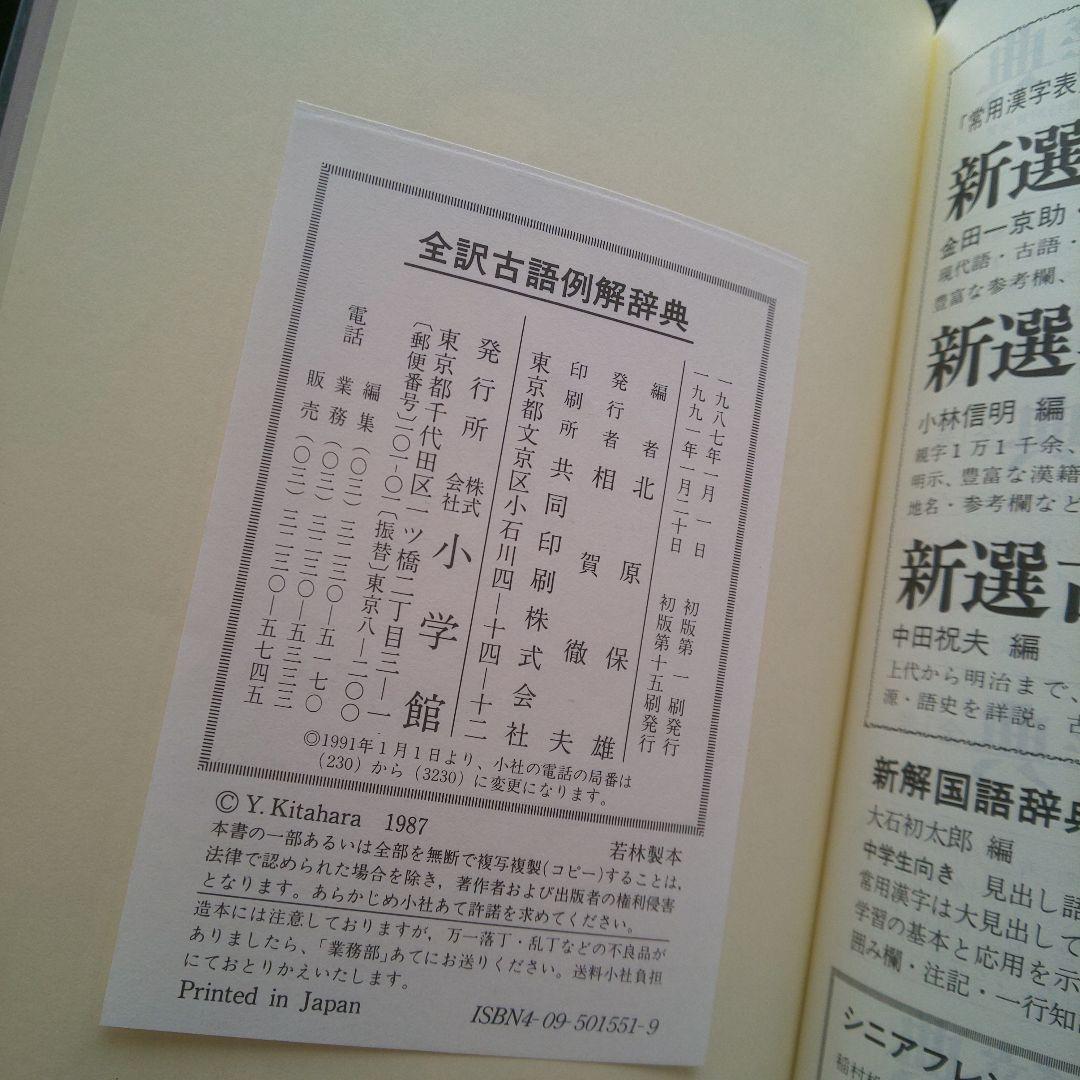 全訳古語例解辞典
一九八七年一月一日 初版第一刷発行
一九九一年一月二十日 初版第十五刷発行
編者 北原保雄
発行者 相賀徹夫
印刷所 共同印刷株式会社
東京都文京区小石川四―十四―十二
発行所 株式会社 小学館
東京都千代田区一ツ橋二丁目三―一
〔郵便番号〕一〇一―〇一〔振替〕東京八―二〇〇
電話 編集(〇三)三二三〇―五一七〇
業務(〇三)三二三〇―五三三三
販売(〇三)三二三〇―五七四五
◎1991年1月1日より、小社の電話の局番は
(230)から(3230)に変更になります。
© Y. Kitahara 1987
若林製本
本書の一部あるいは全部を無断で複写複製(コピー)することは,
法律で認められた場合を除き,著作者および出版者の権利侵害
となります。あらかじめ小社あて許諾を求めてください。
造本には注意しておりますが,万一落丁・乱丁などの不良品が
ありましたら,「業務部」あてにお送りください。送料小社負担
にておとりかえいたします。
Printed in Japan
ISBN4-09-501551-9
「常用漢字表」
新選
金田一京助・
現代語・古語・
豊富な参考欄、
新選
小林信明 編
親字1万1千余、
明示、豊富な漢籍
地名・参考欄など
新選古
中田祝夫 編
上代から明治まで、
源・語史を詳説。古
新解国語辞典
大石初太郎 編
中学生向き 見出し語
常用漢字は大見出しで
学習の基本と応用を示
囲み欄・注記・一行知
シニアフレン
稲村